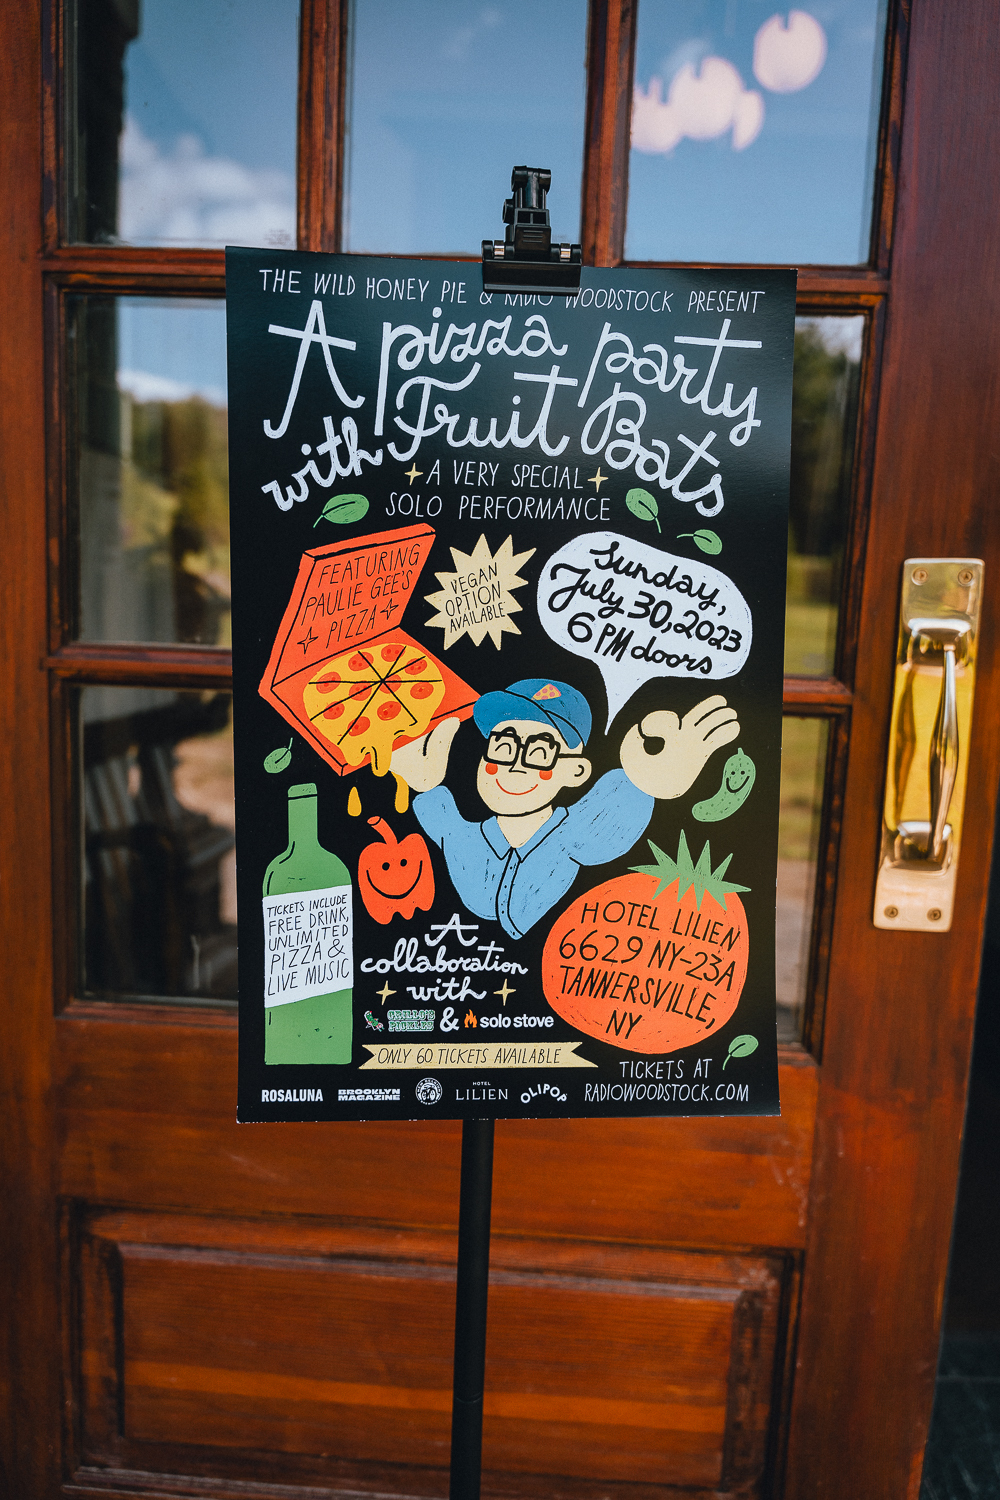 THE WILD HONEY PIE & RADIO WOODSTOCK PRESENT
A pizza party
with Fruit Bats
A VERY SPECIAL
SOLO PERFORMANCE
FEATURING
PAULIE GEE'S
PIZZA
VEGAN
OPTION
AVAILABLE
Sunday,
July 30, 2023
6 PM doors
TICKETS INCLUDE
FREE DRINK,
UNLIMITED
PIZZA &
LIVE MUSIC
A
collaboration
with
GRILLO'S
PICKLES
& solo stove
HOTEL LILIEN
6629 NY-23A
TANNERSVILLE,
NY
ONLY 60 TICKETS AVAILABLE
TICKETS AT
RADIOWOODSTOCK.COM
ROSALUNA
BROOKLYN
MAGAZINE
HOTEL
LILIEN
OLIPOP